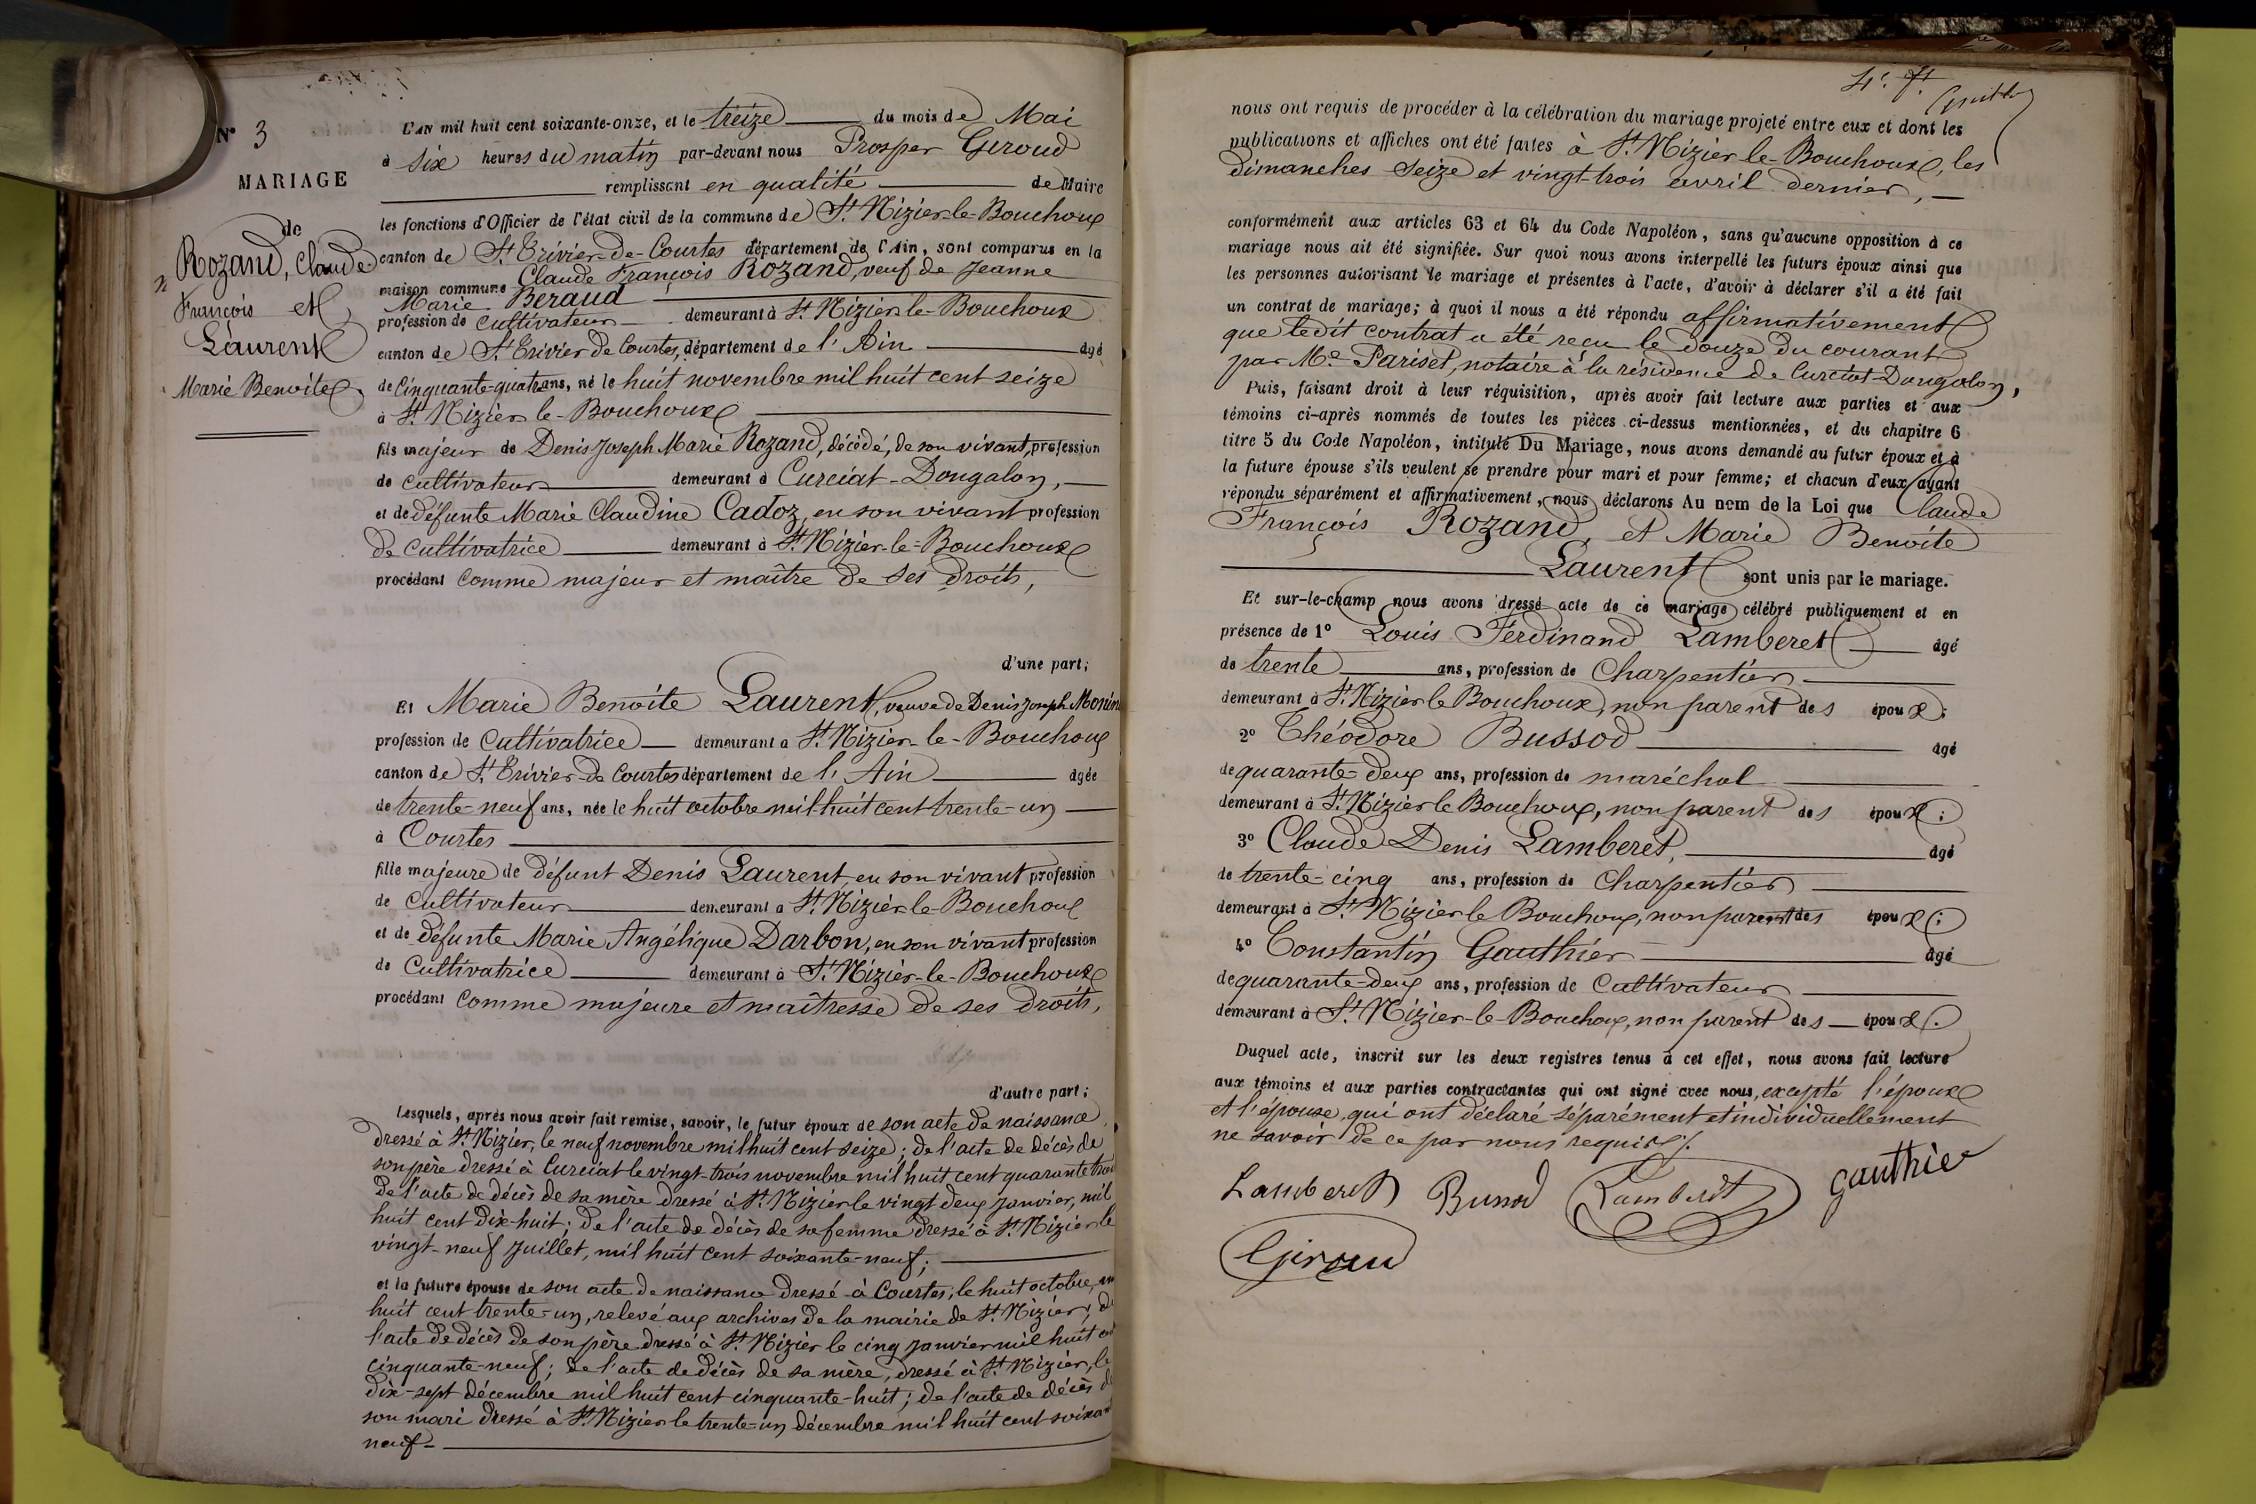 N° 3
MARIAGE
de
Rozand, Claude
François et
Laurent
Marie Benoite
L'AN mil huit cent soixante-onze, et le treize du mois de Mai
à six heures du matin par-devant nous Prosper Giroud
remplissant en qualité de Maire
les fonctions d'Officier de l'état civil de la commune de St Nizier-le-Bouchoux
canton de St Trivier-de-Courtes département de l'Ain, sont comparus en la
maison commune Claude François Rozand, veuf de Jeanne
Marie Beraud
profession de cultivateur demeurant à St Nizier-le-Bouchoux
canton de St Trivier de Courtes, département de l'Ain âgé
de Cinquante-quatre ans, né le huit novembre mil huit cent seize
à St Nizier le-Bouchoux
fils majeur de Denis Joseph Marie Rozand, décédé, de son vivant, profession
de cultivateur demeurant à Curciat-Dongalon,
et de défunte Marie Claudine Cadoz, en son vivant profession
de cultivatrice demeurant à St Nizier-le-Bouchoux
procédant comme majeur et maître de ses droits,
d'une part;
Et Marie Benoite Laurent, veuve de Denis Joseph Monin
profession de Cultivatrice demeurant à St Nizier-le-Bouchoux
canton de St Trivier-de Courtes département de l'Ain âgée
de trente-neuf ans, née le huit octobre mil huit cent trente-un
à Courtes
fille majeure de défunt Denis Laurent, en son vivant profession
de cultivateur demeurant à St Nizier-le-Bouchoux
et de défunte Marie Angélique Darbon, en son vivant profession
de Cultivatrice demeurant à St Nizier-le-Bouchoux
procédant comme majeure et maîtresse de ses droits,
d'autre part;
Lesquels, après nous avoir fait remise, savoir, le futur époux de son acte de naissance
dressé à St Nizier, le neuf novembre mil huit cent seize; de l'acte de décès de
son père dressé à Curciat le vingt-trois novembre mil huit cent quarante
de l'acte de décès de sa mère dressé à St Nizier le vingt deux janvier, mil
huit cent dix-huit; de l'acte de décès de sa femme dressé à St Nizier le
vingt-neuf juillet, mil huit cent soixante-neuf;
et la future épouse de son acte de naissance dressé à Courtes, le huit octobre,
huit cent trente-un, relevé aux archives de la mairie de St Nizier; de
l'acte de décès de son père dressé à St Nizier le cinq janvier mil huit
cinquante-neuf; de l'acte de décès de sa mère, dressé à St Nizier, le
dix-sept décembre mil huit cent cinquante-huit; de l'acte de décès de
son mari dressé à St Nizier le trente-un décembre mil huit cent
neuf
nous ont requis de procéder à la célébration du mariage projeté entre eux et dont les
publications et affiches ont été faites à St Nizier-le-Bouchoux, les
dimanches seize et vingt-trois avril dernier,
conformément aux articles 63 et 64 du Code Napoléon, sans qu'aucune opposition à ce
mariage nous ait été signifiée. Sur quoi nous avons interpellé les futurs époux ainsi que
les personnes autorisant le mariage et présentes à l'acte, d'avoir à déclarer s'il a été fait
un contrat de mariage; à quoi il nous a été répondu affirmativement
que ledit contrat a été reçu le douze du courant
par Me Pariset, notaire à la résidence de Curciat-Dongalon,
Puis, faisant droit à leur réquisition, après avoir fait lecture aux parties et aux
témoins ci-après nommés de toutes les pièces ci-dessus mentionnées, et du chapitre 6
titre 5 du Code Napoléon, intitulé Du Mariage, nous avons demandé au futur époux et à
la future épouse s'ils veulent se prendre pour mari et pour femme; et chacun d'eux ayant
répondu séparément et affirmativement, nous déclarons Au nom de la Loi que Claude
François Rozand, et Marie Benoite
Laurent sont unis par le mariage.
Et sur-le-champ nous avons dressé acte de ce mariage célébré publiquement et en
présence de 1° Louis Ferdinand Lamberet âgé
de trente ans, profession de Charpentier
demeurant à St Nizier le Bouchoux, non parent des époux;
2° Théodore Bussod âgé
de quarante-deux ans, profession de maréchal
demeurant à St Nizier le Bouchoux, non parent des époux;
3° Claude Denis Lamberet, âgé
de trente-cinq ans, profession de Charpentier
demeurant à St Nizier le Bouchoux, non parent des époux;
4° Constantin Gauthier âgé
de quarante-deux ans, profession de Cultivateur
demeurant à St Nizier-le-Bouchoux, non parent des époux.
Duquel acte, inscrit sur les deux registres tenus à cet effet, nous avons fait lecture
aux témoins et aux parties contractantes qui ont signé avec nous, excepté l'époux
et l'épouse, qui ont déclaré séparément et individuellement
ne savoir de ce par nous requis.
Lamberet Bussod Lamberet gauthier
Giroud